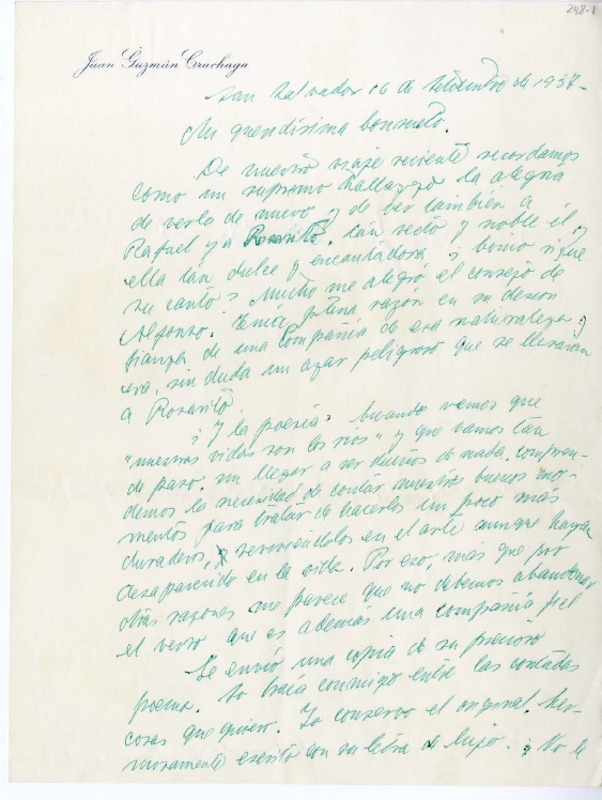 248-1
Juan Guzmán Cruchaga
San Salvador 16 de setiembre de 1957-
Mi queridísima Consuelo.
De nuestro viaje reciente recordamos
como un supremo hallazgo la alegría
de verla de nuevo y de ver también a
Rafael y a Rosarito, tan recto y noble él y
ella tan dulce y encantadora ¿ Cómo sigue
su canto? Mucho me alegró el consejo de
Alfonso. Tenía plena razón en su
de una compañía de esa naturaleza y
era, sin duda un azar peligroso que se llevaran
a Rosarito.
¿ Y la poesía? Cuando vemos que
"nuestras vidas son los ríos" y que vamos tan
de paso, sin llegar a ser dueños de nada, compren-
demos la necesidad de contar nuestros buenos mo-
mentos para tratar de hacerlos un poco más
duraderos, en el arte aunque hayan
desaparecido en la vida. Por eso, más que por
otras razones me parece que no debemos abandonar
el verso que es además una compañía fiel
Le envió una copia de su precioso
poema. Lo traía conmigo entre las contadas
cosas que quiero. Yo conservo el original her-
mosamente escrito con su letra de lujo. ¿ No le